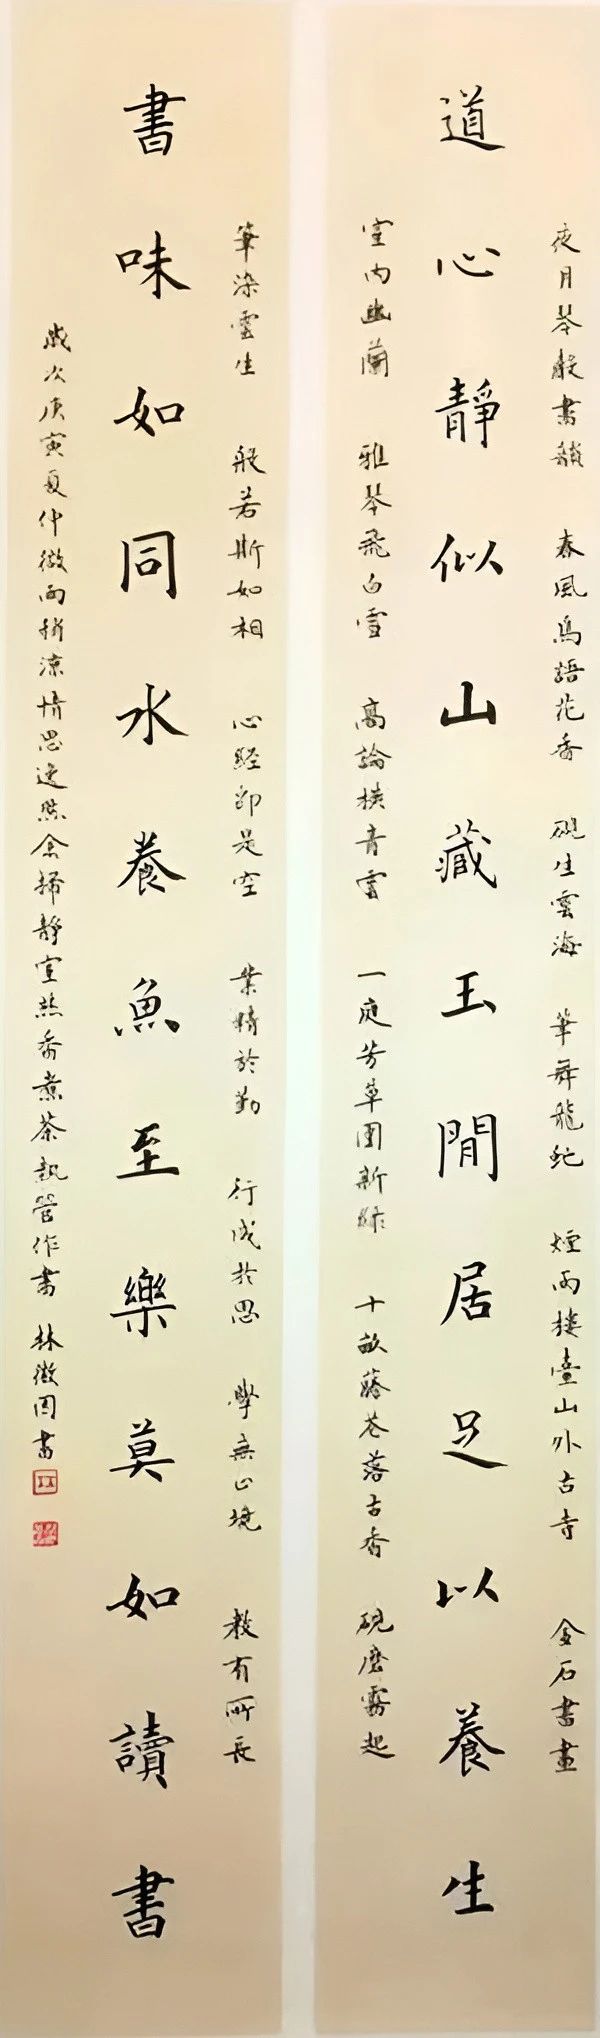 夜月琴聲書韻 春風鳥語花香 硯生雲海 筆舞龍蛇 煙雨樓臺山外古寺 金石書畫
道心靜似山藏玉閒居足以養生
室內幽蘭 雅琴飛白雪 高論橫青雲 一庭芳草圍新綠 十畝藤花落古香 硯磨霧起
筆染雲生 般若斯如相 心經即是空 業精於勤 行成於思 學無止境 教有所長
書味如同水養魚至樂莫如讀書
歲次庚寅夏仲微雨稍涼情思逸然余掃靜室焚香煮茶執管作書 林徵固書